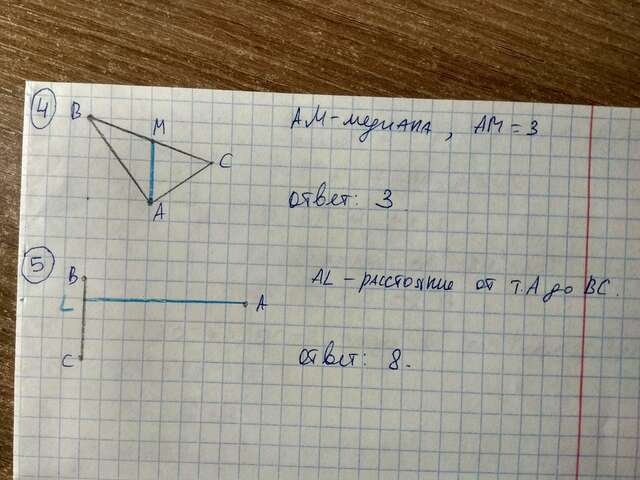 4
B
M
C
A
АМ-медиана, АМ = 3
ответ: 3
5
B
L
A
C
AL - расстояние от т. А до BC.
ответ: 8.